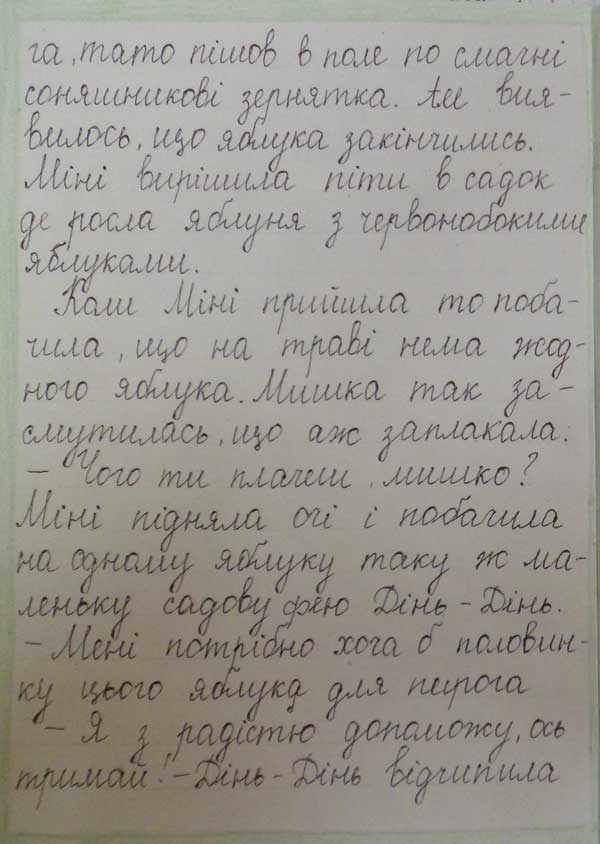 га, тато пішов в поле по смачні
соняшникові зернятка. Але вия-
вилось, що яблука закінчились.
Міні вирішила піти в садок
де росла яблуня з червонобокими
яблуками.
Коли Міні прийшла то поба-
чила, що на траві нема жод-
ного яблука. Мишка так за-
смутилась, що аж заплакала.
– Чого ти плачеш, мишко?
Міні підняла очі і побачила
на одному яблуку таку ж ма-
леньку садову фею Дінь-Дінь.
– Мені потрібно хоча б половин-
ку цього яблука для пирога
– Я з радістю допоможу, ось
тримай! – Дінь-Дінь відчипила